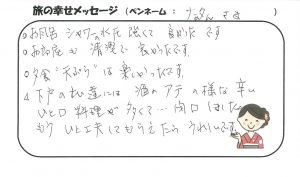 旅の幸せメッセージ（ペンネーム： さま）
○お風呂 シャワーの水圧 強くて 良かったです
○お部屋も 清潔で 良かったです
○夕食“天ぷら”は 美味しかったです
下戸の私達には 酒のアテの様な辛い
ひと口料理が多くて…
もうひと工夫してもらえたら うれしいです。